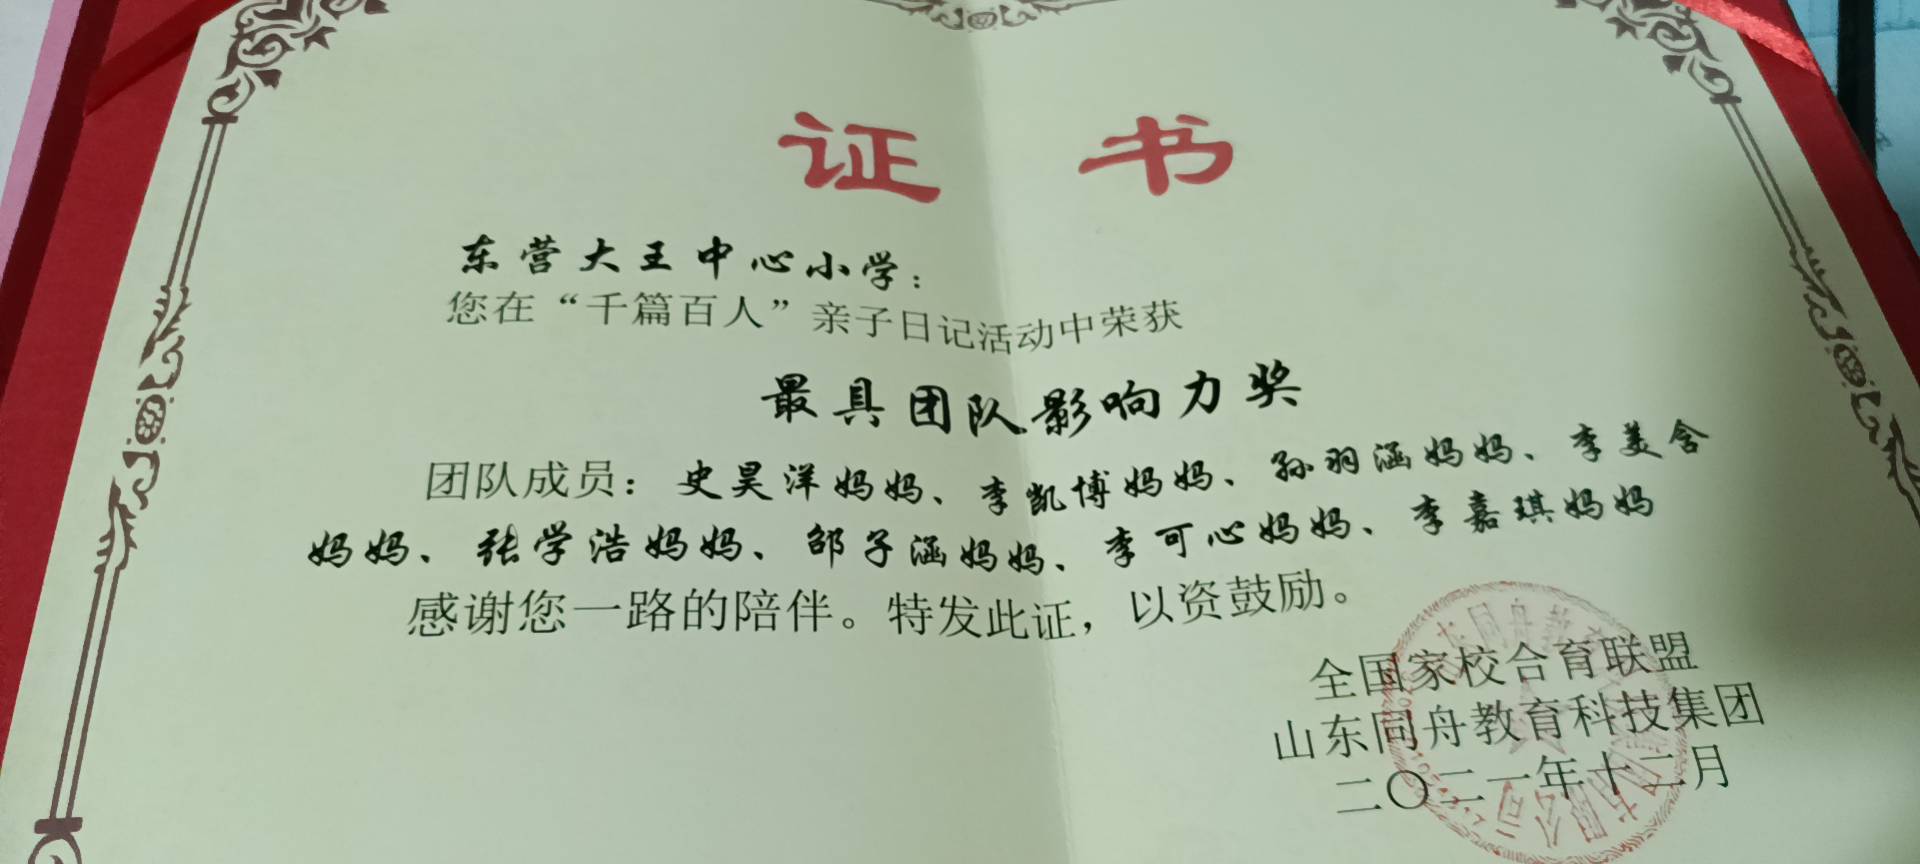 证书
东营大王中心小学：
您在“千篇百人”亲子日记活动中荣获
最具团队影响力奖
团队成员：史昊洋妈妈、李凯博妈妈、孙羽涵妈妈、李美含
妈妈、张学浩妈妈、邵子涵妈妈、李可心妈妈、李嘉琪妈妈
感谢您一路的陪伴。特发此证，以资鼓励。
全国家校合育联盟
山东同舟教育科技集团
二〇二一年十二月